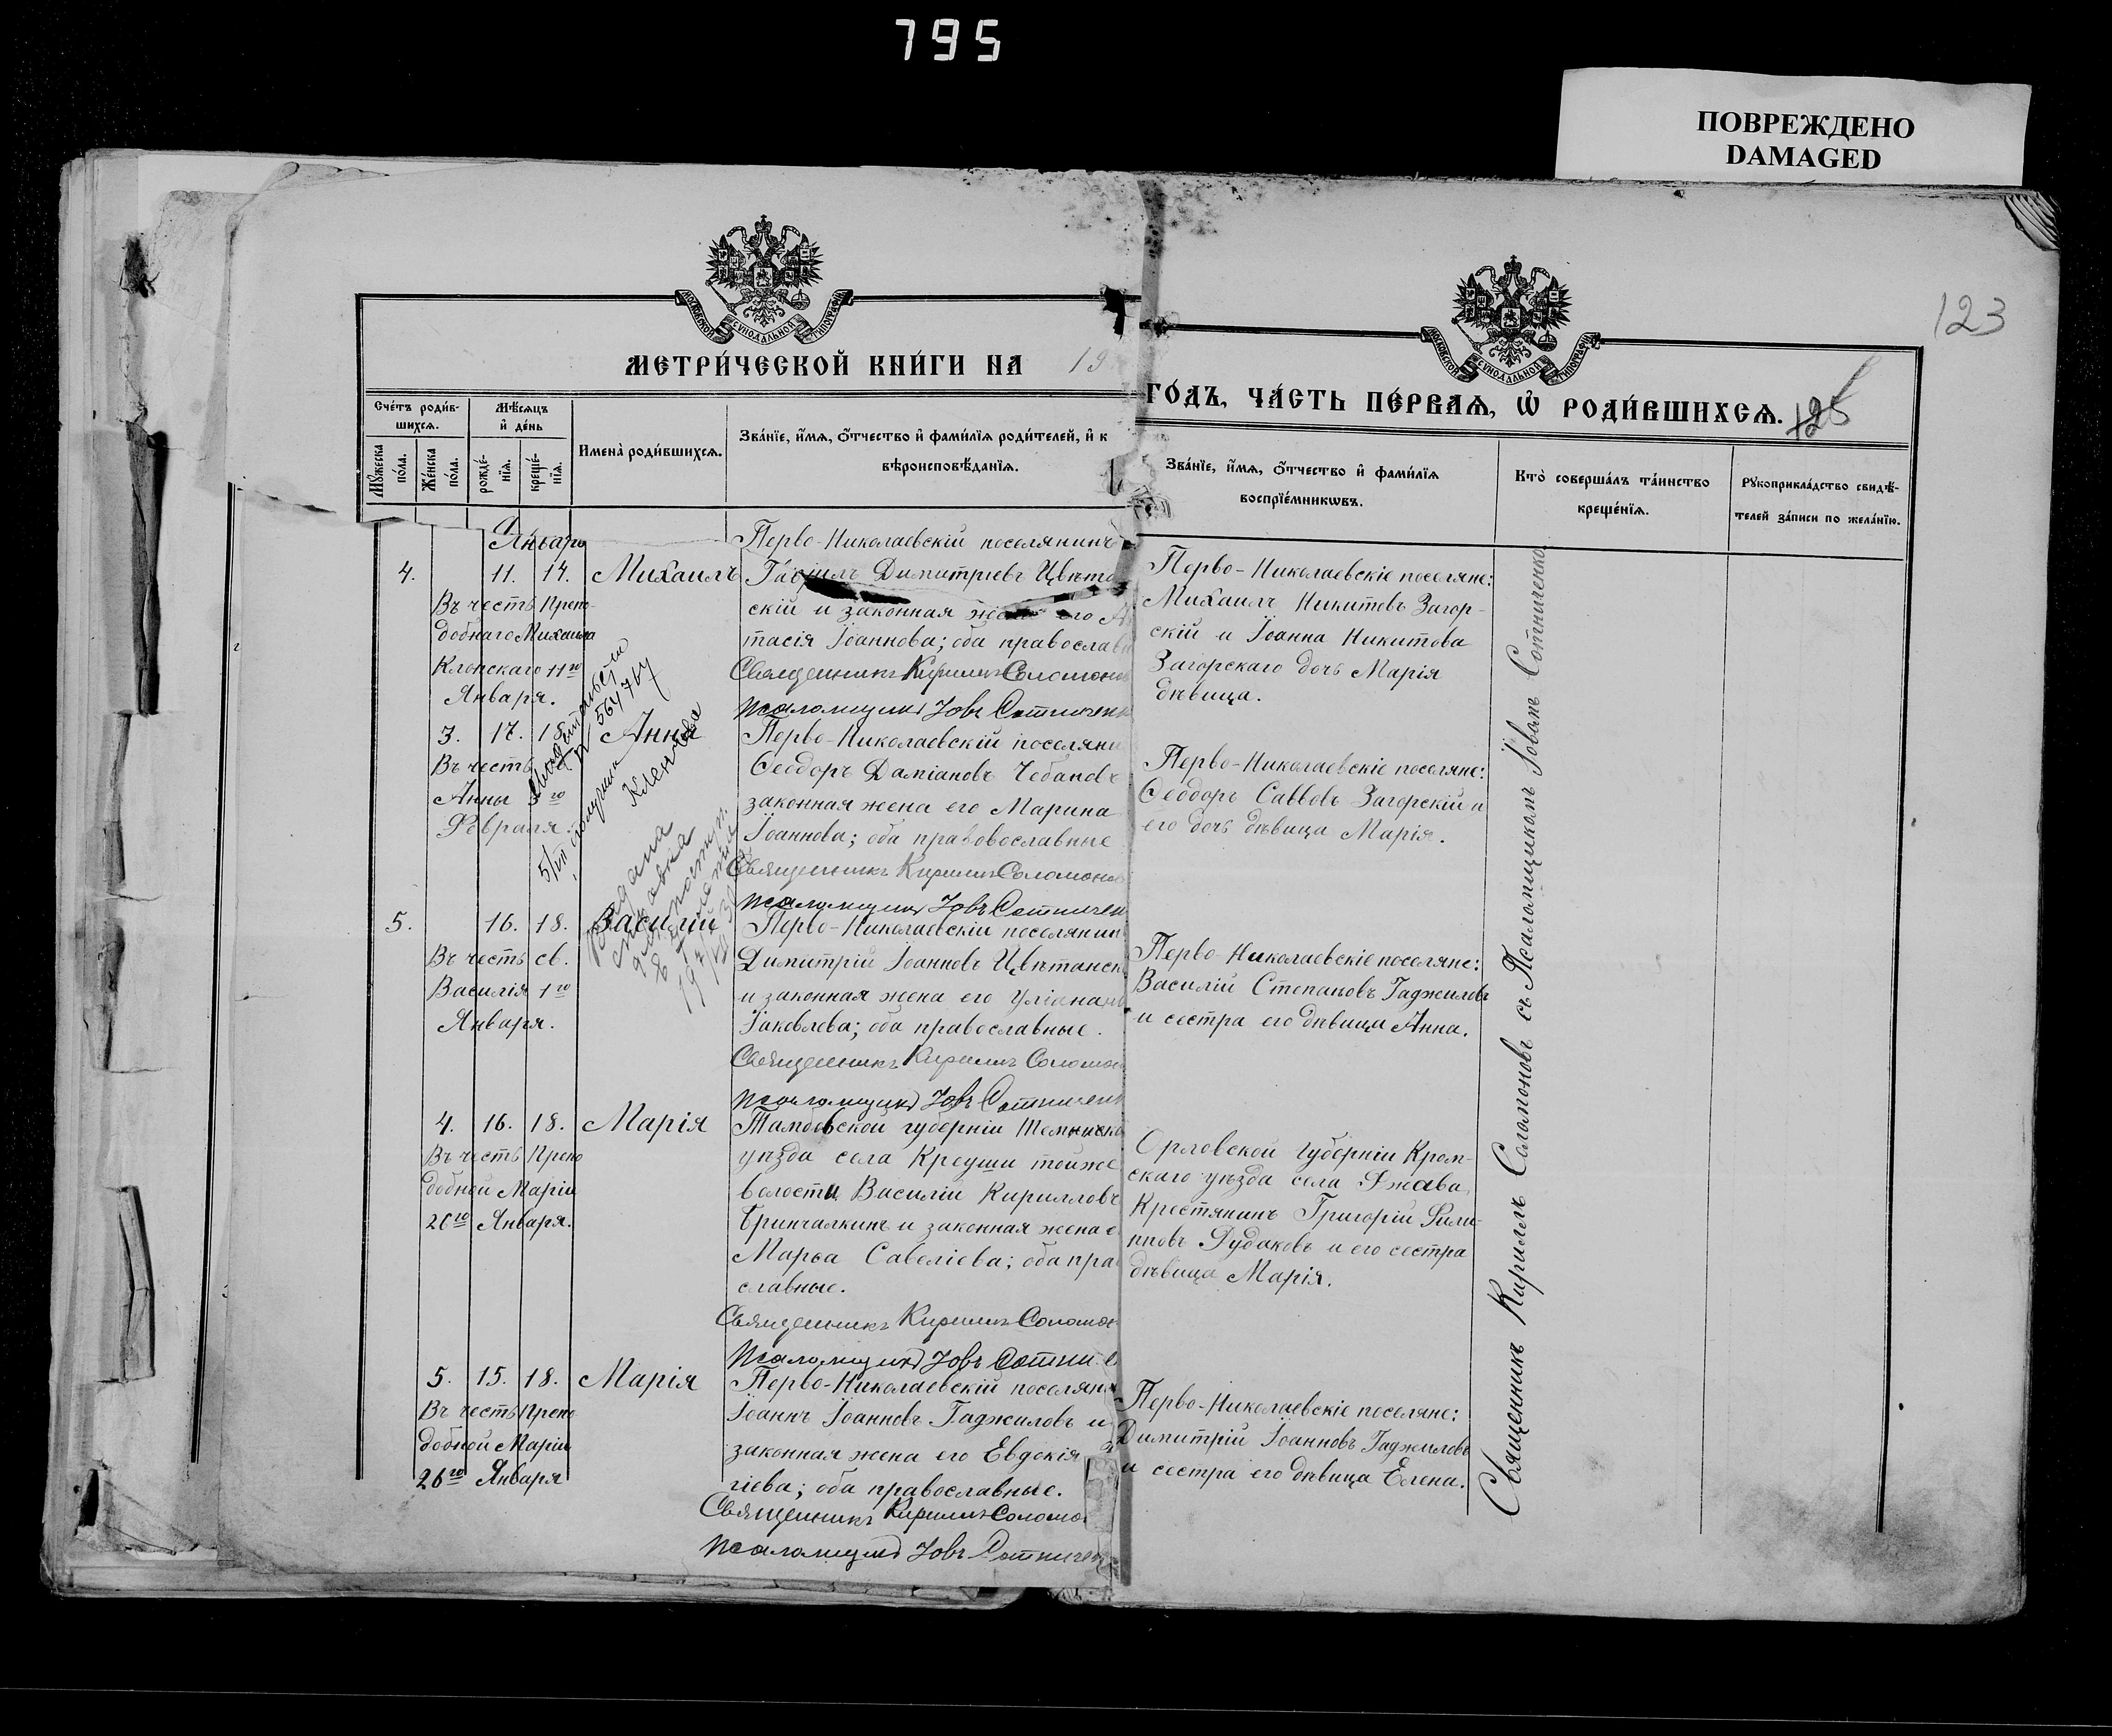 795
ПОВРЕЖДЕНО
DAMAGED
123
МОСКОВСКОЙ СѴНОДАЛЬНОЙ ТИПОГРАФІИ
МОСКОВСКОЙ СѴНОДАЛЬНОЙ ТИПОГРАФІИ
МЕТРИ́ЧЕСКОЙ КНИ́ГИ НА 19
ГО́ДЪ, ЧА́СТЬ ПЕ́РВАѦ, Ѽ РОДИ́ВШИХСѦ.
125
Сче́тъ роди́в-
шихсѧ.
Мꙋ́жеска по́ла.
Же́нска по́ла.
Мѣ́сѧцъ
и҆ де́нь
рожде́-
нїѧ.
креще́-
нїѧ.
Имена̀ роди́вшихсѧ.
Зва́нїе, и҆́мѧ, ѻ҆́тчество и҆ фами́лїѧ роди́телей, и҆ к
вѣроисповѣ́данїѧ.
Зва́нїе, и҆́мѧ, ѻ҆́тчество и҆ фами́лїѧ
воспрїе́мникѡвъ.
Кто̀ соверша́лъ та́инство
креще́нїѧ.
Рꙋкоприкла́дство свидѣ́-
телей за́писи по жела́нїю.
Январь
4. 11. 14. Михаилъ
Въ честь Препо-
добнаго Михаила
Клопскаго 11го
Января.
Перво-Николаевскій поселянинъ
Гавріилъ Димитріевъ Цвѣта
скій и законная жена его А
тасія Іоаннова; оба православн
Священникъ Кириллъ Соломонов
Псаломщикъ Іовъ Сотниченк
Перво-Николаевскіе поселяне:
Михаилъ Никитовъ Загор-
скій и Іоанна Никитова
Загорскаго дочь Марія
дѣвица.
3. 17. 18. Анна
Въ честь
Анны 3го
Февраля.
Перво-Николаевскій поселяни
Ѳеодоръ Даміановъ Чебановъ
законная жена его Марина
Іоаннова; оба правовославные
Священникъ Кириллъ Соломонов
Псаломщикъ Іовъ Сотничен
Перво-Николаевскіе поселяне:
Ѳеодоръ Саввовъ Загорскій и
его дочь дѣвица Марія.
№ 564764
5/VII
5. 16. 18. Василій
Въ честь св.
Василія 1го
Января.
Перво-Николаевскій поселянин
Димитрій Іоанновъ Цвѣтанск
и законная жена его Уліанан
Іаковлева; оба православные.
Священникъ Кириллъ Соломон
Псаломщикъ Іовъ Сотниченк
Перво-Николаевскіе поселяне:
Василій Степановъ Гаджиловъ
и сестра его дѣвица Анна.
4. 16. 18. Марія
Въ честь Препо
добной Маріи
26го Января.
Тамбовской губерніи Темниско
уѣзда села Креуши тойже
волости Василій Кирилловъ
Бринчалкинъ и законная жена е
Марѳа Савеліева; оба пра
славные.
Священникъ Кириллъ Соломон
Псаломщикъ Іовъ Сотни
Орловской губерніи Кром-
скаго уѣзда села Ржава,
Крестянинъ Григорій Фили-
пповъ Рудаковъ и его сестра
дѣвица Марія.
5. 15. 18. Марія
Въ честь Препо
добной Маріи
26го Января
Перво-Николаевскій поселян
Іоаннъ Іоанновъ Гаджиловъ и
законная жена его Евдокія
гіева; оба православные.
Священникъ Кириллъ Соломо
Псаломщикъ Іовъ Сотничен
Перво-Николаевскіе поселяне:
Димитрій Іоанновъ Гаджиловъ
и сестра его дѣвица Елена.
Священникъ Кириллъ Соломоновъ съ Псаломщикомъ Іовомъ Сотниченко